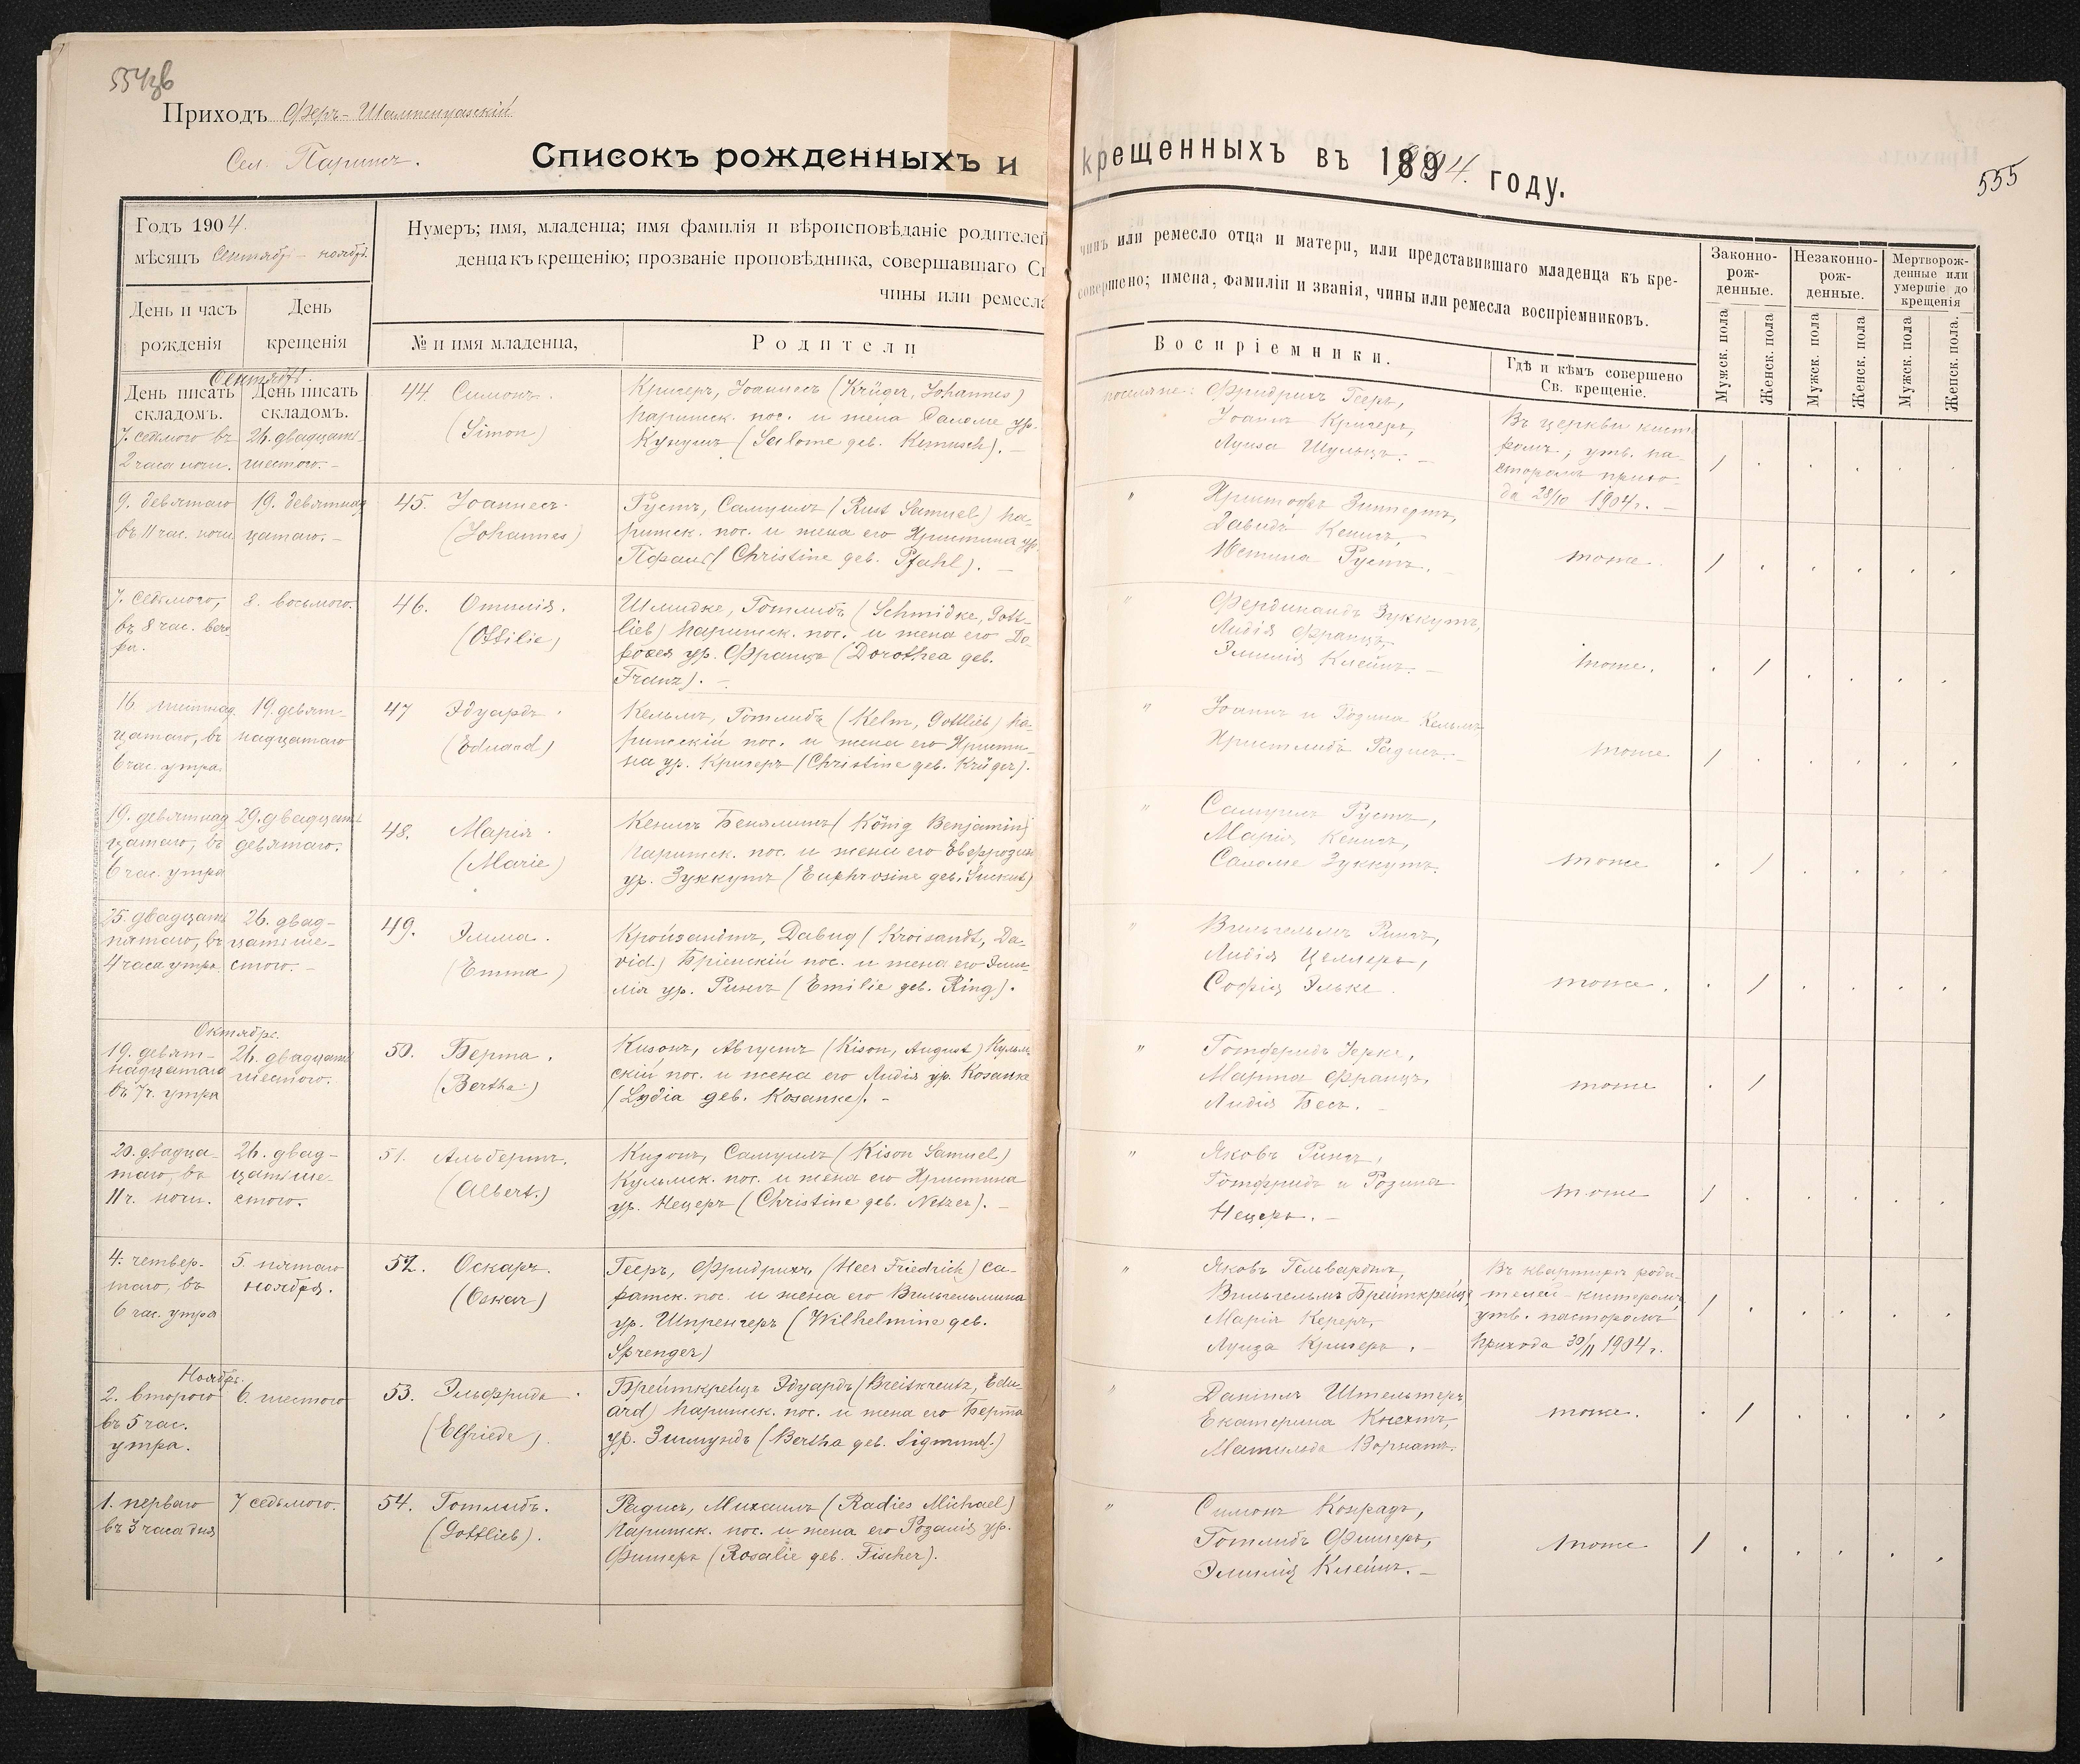 554об
Приходъ Феръ-Шампенуазскій
Сел. Парижъ.
Списокъ рожденныхъ и
Годъ 1904.
мѣсяцъ Сентябрь - ноябрь.
Нумеръ; имя, младенца; имя фамилія и вѣроисповѣданіе родителей
денца къ крещенію; прозваніе проповѣдника, совершавшаго С
чины или ремесла
День и часъ рожденія
День крещенія
№ и имя младенца,
Родители
Сентябрь.
День писать складомъ.
День писать складомъ.
7. седьмого въ
2 часа ночи.
26. двадцать
шестого. -
44. Симонъ.
(Simon)
Кригеръ, Іоаннесъ (Krüger, Johannes)
парижск. пос. и жена Саломе ур.
(Salome geb. ).
9. девятаго
въ 11 час. ночи
19. девятнад
цатаго. -
45. Іоаннесъ.
(Johannes)
Рустъ, Самуилъ (Rust Samuel) па-
рижск. пос. и жена его Христина ур.
Пфаль (Christine geb. Pfahl). -
7. седьмого,
въ 8 час. вече
ра.
8. восьмого.
46. Отилія.
(Ottilie)
Шмидке, Готлибъ (Schmidke, Gott-
lieb) парижск. пос. и жена его До-
ротея ур. Францъ (Dorothea geb.
Franz). -
16. шестнад
цатаго, въ
6 час. утра.
19. девят-
надцатаго
47 Эдуардъ.
(Eduard)
Кельмъ, Готлибъ (Kelm, Gottlieb) па-
рижскій пос. и жена его Христи-
на ур. Кригеръ (Christine geb. Krüger).
19. девятнад
цатаго, въ
6 час. утра
29. двадцать
девятаго.
48. Марія.
(Marie)
Кенигъ Беняминъ (König Benjamin)
парижск. пос. и жена его Евфрозина
ур. Зуккутъ (Euphrosine geb. Suckut)
25. двадцать
пятаго, въ
4 часа утра.
26. двад-
цать ше-
стого. -
49. Эмма.
(Emma)
Кройзандтъ, Давид (Kroisandt, Da-
vid) Бріенскій пос. и жена его Эми-
лія ур. Рингъ (Emilie geb. Ring).
Октябрь.
19. девят-
надцатаго
въ 7 ч. утра
26. двадцать
шестого.
50. Берта.
(Bertha)
Кизонъ, Августъ (Kison, August) Кульм
скій пос. и жена его Лидія ур. Козанке
(Lydia geb. Kosanke). -
20. двадца-
таго, въ
11 ч. ночи.
26. двад-
цать ше-
стого.
51. Альбертъ.
(Albert.)
Кизонъ, Самуилъ (Kison Samuel)
Кульмск. пос. и жена его Христина
ур. Нецеръ (Christine geb. Netzer). -
4. четвер-
таго, въ
6 час. утра
5. пятаго
ноября.
52. Оскаръ.
(Oskar)
Гееръ, Фридрихъ (Heer Friedrich) са-
ратск. пос. и жена его Вильгельмина
ур. Шпренгеръ (Wilhelmine geb.
Sprenger)
Ноябрь.
2. второго
въ 5 час.
утра.
6. шестого
53. Эльфриде.
(Elfriede).
Брейткрейцъ Эдуардъ (Breitkreutz, Edu-
ard) парижск. пос. и жена его Берта
ур. Зигмундъ (Bertha geb. Sigmund.)
1. перваго
въ 3 часа дня
7 седьмого.
54. Готлибъ.
(Gottlieb).
Радисъ, Михаилъ (Radies Michael)
парижск. пос. и жена его Розалія ур.
Фишеръ (Rosalie geb. Fischer).
крещенныхъ въ 1904. году.
555
чинъ или ремесло отца и матери, или представившаго младенца къ кре-
совершено; имена, фамиліи и званія, чины или ремесла воспріемниковъ.
Воспріемники.
Гдѣ и кѣмъ совершено Св. крещеніе.
Законно-рож-денные.
Незаконно-рож-денные.
Мертворож-денные или умершіе до крещенія
Мужск. пола
Женск. пола
Мужск. пола
Женск. пола
Мужск. пола
Женск. пола.
поселяне: Фридрихъ Гееръ,
Іоаннъ Кригеръ,
Луиза Шульцъ. -
Въ церкви кисте
ромъ, утв. па-
сторомъ прихо-
да 28/10 1904 г. -
" Христофъ Зиппертъ,
Давидъ Кенигъ,
Рустъ.
тоже
" Фердинандъ Зуккутъ,
Лидія Францъ,
Эмилія Клейнъ. -
тоже.
" Іоаннъ и Розина Кельмъ
Христлибъ Радисъ. -
тоже
" Самуилъ Рустъ,
Марія Кенигъ,
Саломе Зуккутъ.
тоже
" Вильгельмъ Рингъ,
Лидія Целлеръ,
Софія Эльке.
тоже.
" Готфридъ Іерке,
Марта Францъ,
Лидія Бесъ. -
тоже
" Яковъ Рингъ,
Готфридъ и Розина
Нецеръ. -
тоже
" Яковъ Гельвардтъ,
Вильгельмъ Брейткрейцъ
Марія Кереръ,
Луиза Кригеръ. -
Въ квартирѣ роди-
телей - кистеромъ
утв. пасторомъ
прихода 30/11 1904 г.
" Даніилъ Штельтеръ,
Екатерина Кнехтъ,
Матильда Ворнатъ.
тоже.
" Симонъ Конрадъ,
Готлибъ Фишеръ,
Эмилія Клейнъ. -
тоже